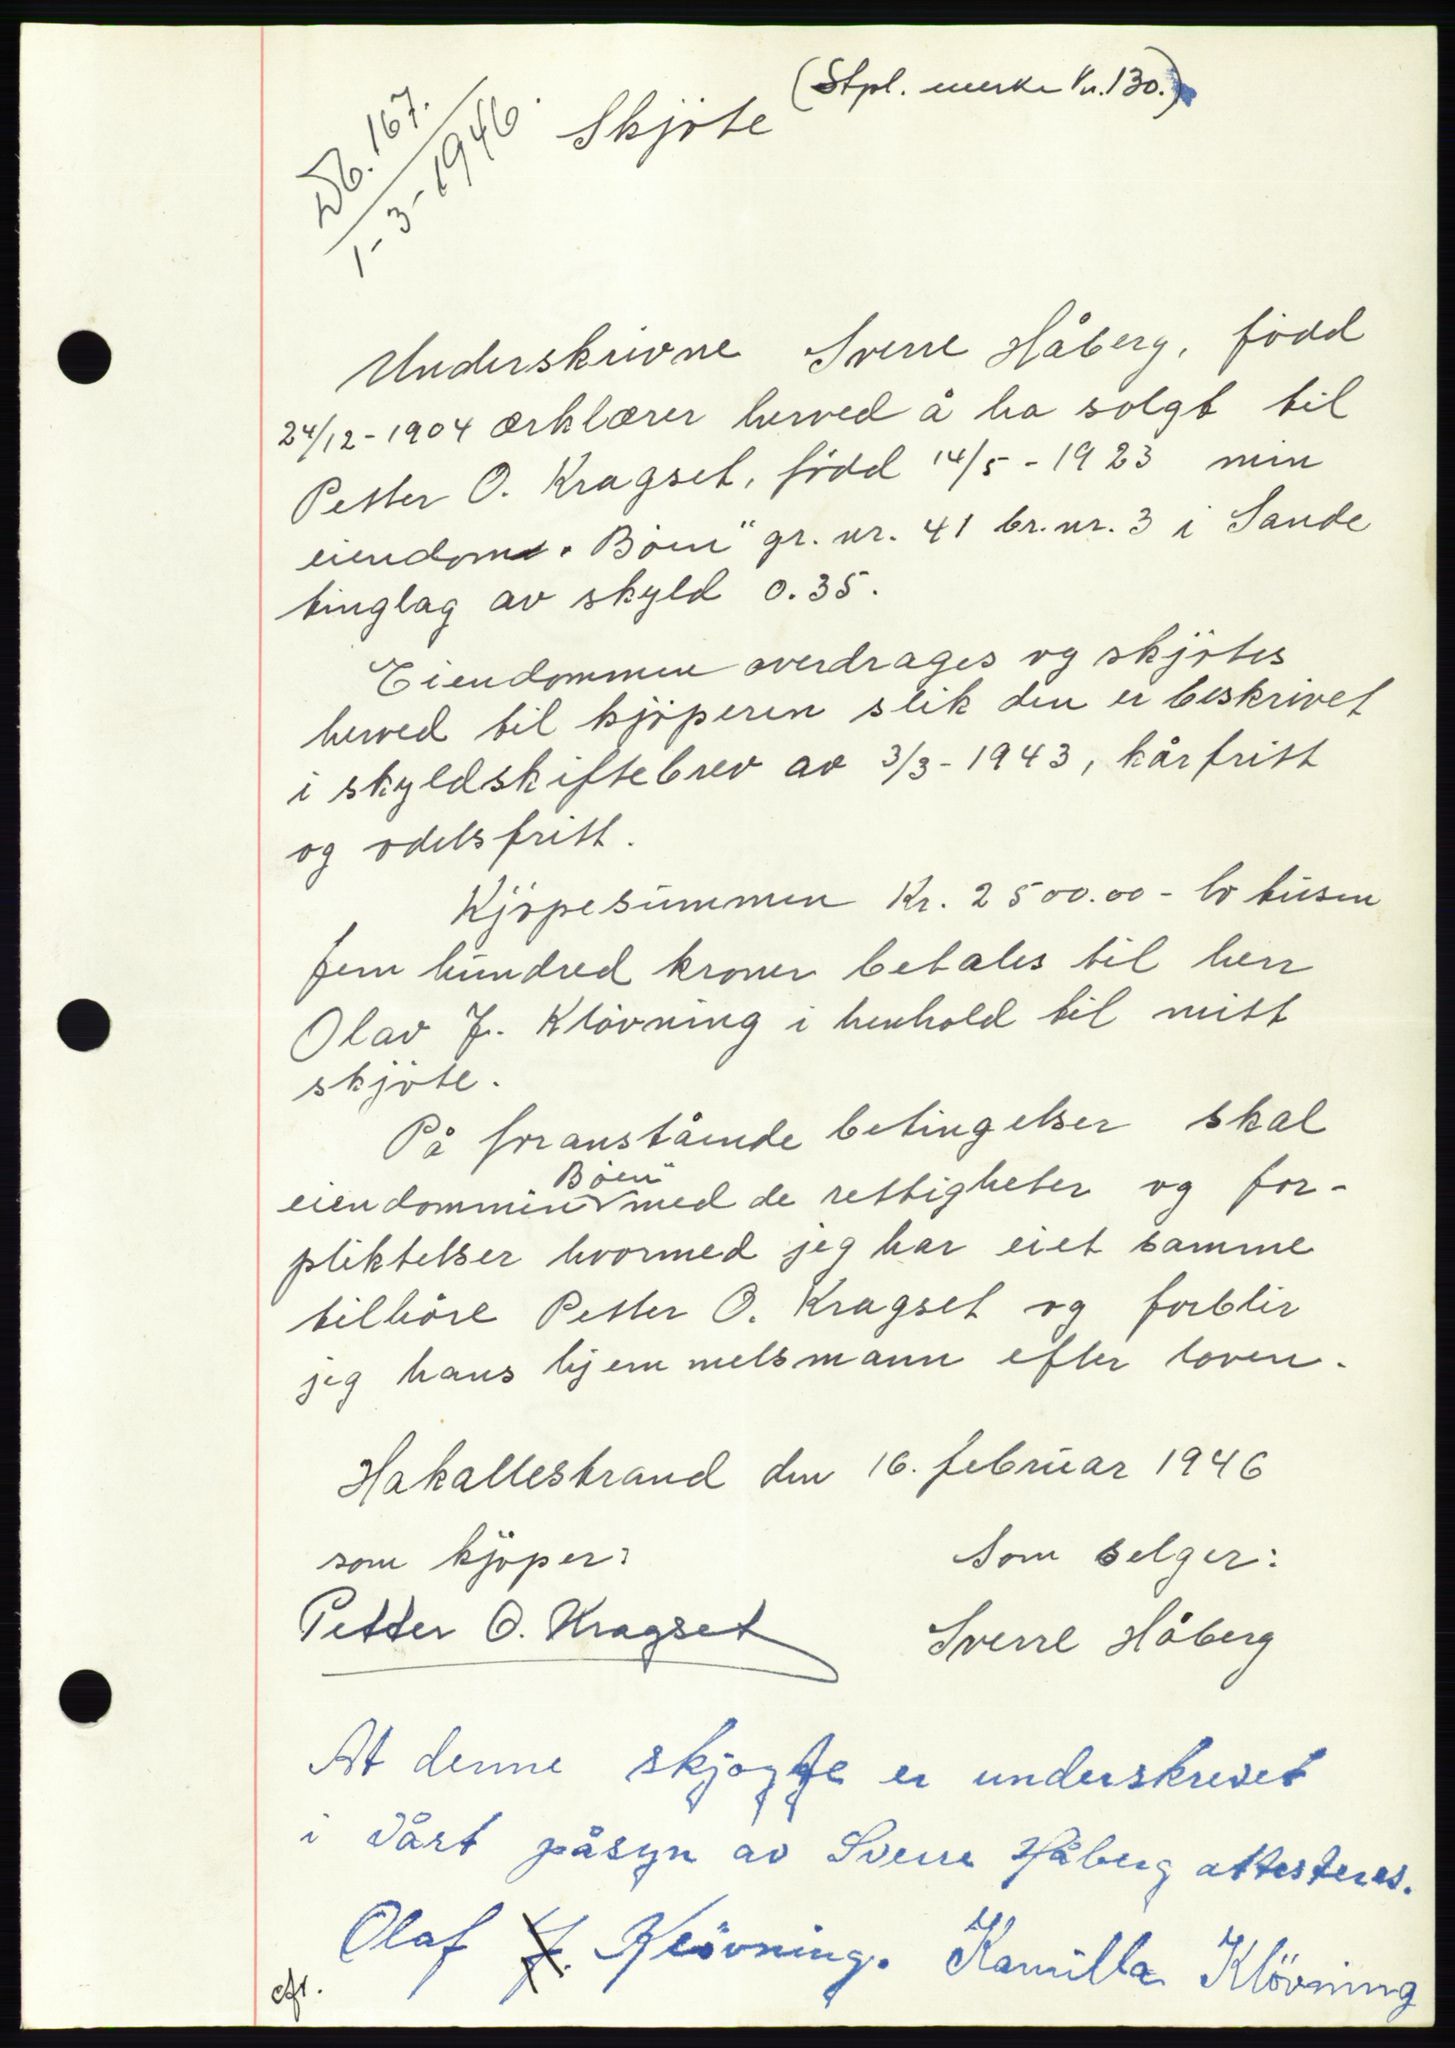 (Stpl. merke kr. 130.)
Db. 167.
1-3-1946.
Skjöte
Underskrivne Sverre Håberg, född
24/12-1904 ærklærer herved å ha solgt til
Petter O. Kragset, född 14/5-1923 min
eiendom „Böen" gr. nr. 41 br. nr. 3 i Sande
tinglag av skyld 0.35.
Eiendommen overdrages og skjötes
herved til kjöperen slik den er beskrivet
i skyldskiftebrev av 3/3-1943, kårfritt
og odelsfritt.
Kjöpesummen Kr. 2500.00 - to tusen
fem hundred kroner betales til herr
Olav J. Klövning i henhold til mitt
skjöte.
På foranstående betingelser skal
Böen"
eiendommen med de rettigheter og for-
pliktelser hvormed jeg har eiet samme
tilhöre Petter O. Kragset og forblir
jeg hans hjemmelsmann efter loven.
Hakallestrand den 16. februar 1946
som kjöper: Som selger:
Petter O. Kragset Sverre Håberg
At denne skjøte er underskrevet
i vårt påsyn av Sverre Håberg attesteres.
Olaf J. Klövning. Kamilla Klövning